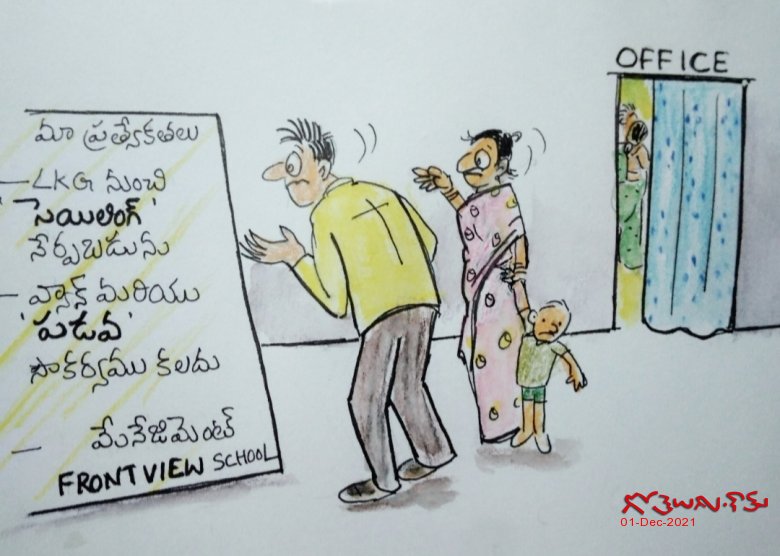 OFFICE
మా ప్రత్యేకతలు
– LKG నుంచి
'సెయిలింగ్'
నేర్పబడును
– వ్యాన్ మరియు
'పడవ'
సౌకర్యము కలదు
– మేనేజిమెంట్
FRONTVIEW SCHOOL
గోతెలుగు.కామ్
01-Dec-2021